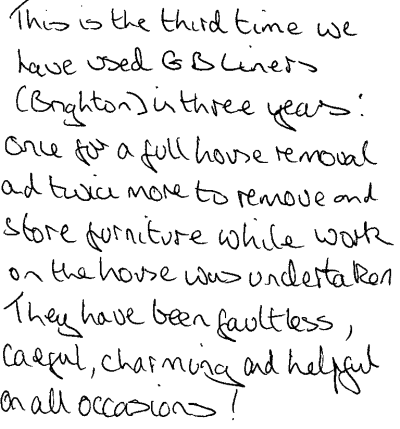 This is the third time we
have used GB Liners
(Brighton) in three years:
once for a full house removal
and twice more to remove and
store furniture while work
on the house was undertaken
They have been faultless,
careful, charming and helpful
on all occasions!